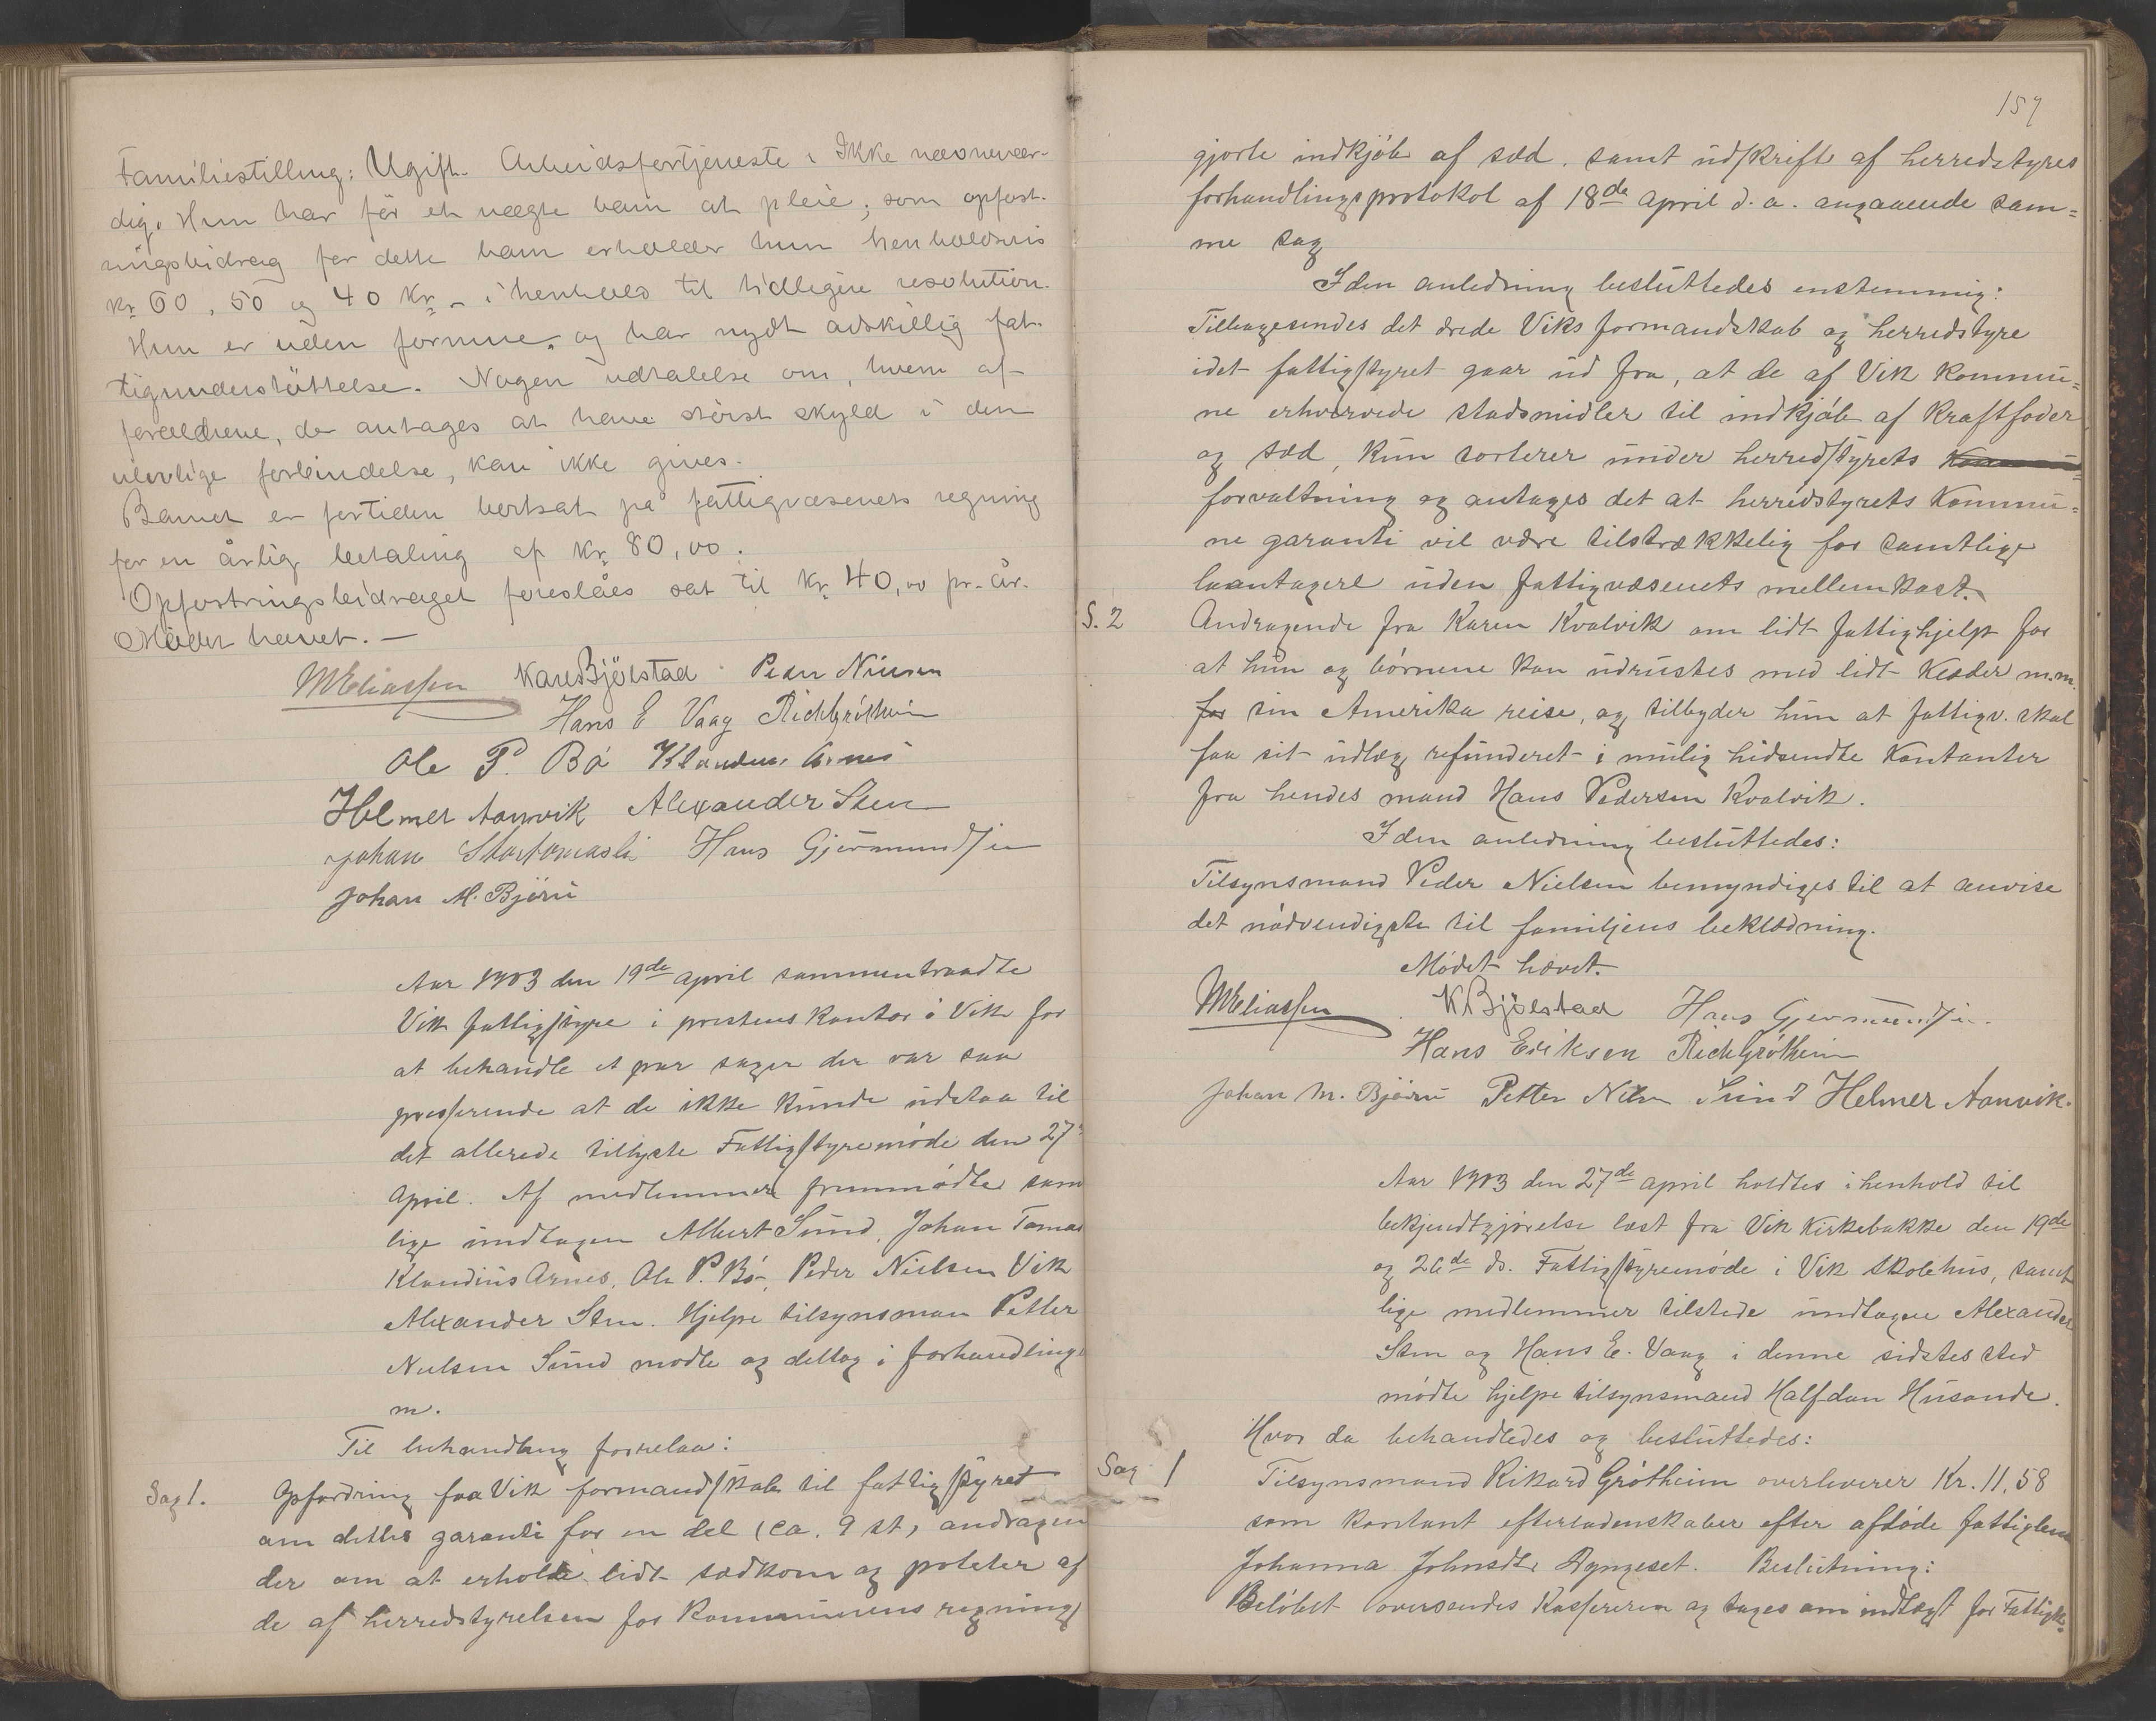 Familiestilling: Ugift. Arbeidsfortjeneste: Ikke nævnevær-
dig. Hun har før et uægte barn at pleie; som opfost-
ringsbidrag for dette barn erholder hun henholdsvis
kr 60, 50 og 40 kr - i henhold til tidligere resolution.
Hun er uden formue, og har nydt adskillig fat-
tigunderstøttelse. Nogen udtalelse om, hvem af
forældrene, der antages at have størst skyld i den
ulovlige forbindelse, kan ikke gives.
Barnet er fortiden bortsat på fattigvæsenets regning
for en årlig betaling af kr. 80,00.
Opfostringsbidraget foreslåes sat til kr 40,00 pr. år.
Mødet hævet. —
MEliassen KaneBjølstad Peder Nielsen
Hans E Vaag RichGrøtheim
Ole P. Bø Klaudius Arnes
Helmer Aanvik Alexander Sten
Johan Hans Gjermundsen
Johan M. Bjøru
Aar 1903 den 19de april sammentraadte
Vik fattigstyre i prestens kontor i Vik for
at behandle et par sager der var saa
presserende at de ikke kunde udstaa til
det allerede tillyste Fattigstyremøde den 27de
April. Af medlemmer fremmødte sam
lige undtagen Albert Sund, Johan Tomas
Klaudius Arnes, Ole P. Bø, Peder Nielsen Vik
Alexander Sten. Hjelpe tilsynsman Petter
Nielsen Sund mødte og deltog i forhandlinge
m.
Til behandling forrelaa:
Sag 1. Opfordring fra Vik formandskab til fattigstyret
om dettes garanti for en del (ca. 9 st) andragen
der om at erholde lidt sædkorn og poteter af
de af herredstyrelsen for kommunens regning
157
gjorte indkjøb af sæd. samt udskrift af herredstyres
forhandlingsprotokol af 18de april d. a. angaaende sam=
me sag
I den anledning besluttedes enstemmig:
Tilbagesendes det ærede Viks formandskab og herredstyre
idet fattigstyret gaar ud fra, at de af Vik kommu=
ne erhvervede stadsmidler til indkjøb af kraftfoder
og sæd, kun sorterer under herredstyrets
forvaltning og antages det at herredstyrets kommu=
ne garanti vil være tilstrækkelig for samtlige
laantagere uden fattigvæsenets mellemkost.
S. 2 Andragende fra Karen Kvalvik om lidt fattighjelp for
at hun og børnene kan udrustes med lidt klæder m.m.
for sin Amerika reise, og tilbyder hun at fattigv. skal
faa sit udlæg refunderet i mulig hidsendte kontanter
fra hendes mand Hans Pedersen Kvalvik.
I den anledning besluttedes:
Tilsynsmand Peder Nielsen bemyndiges til at anvise
det nødvendigste til familjens beklædning.
Mødet hævet.
MEliassen KBjølstad Hans Gjermundsen.
Hans Eriksen RichGrøtheim
Johan M. Bjøru Petter Nilsn Sund Helmer Aanvik.
Aar 1903 den 27de april holdtes i henhold til
bekjendtgjørelse læst fra Vik Kirkebakke den 19de
og 26de ds. Fattigstyremøde i Vik skolehus, samt
lige medlemmer tilstede undtagen Alexander
Sten og Hans E. Vaag i denne sidstes sted
mødte hjelpe tilsynsmand Halfdan Husande.
Hvor da behandledes og besluttedes:
Sag 1 Tilsynsmand Rikard Grøtheim overleverer Kr. 11,58
som kontant efterladenskaber efter afdøde fattiglem
Johanna Johnsdtr Ryngeset. Beslutning:
Beløbet oversendes Kassereren og tages om indtægt for Fattigk=